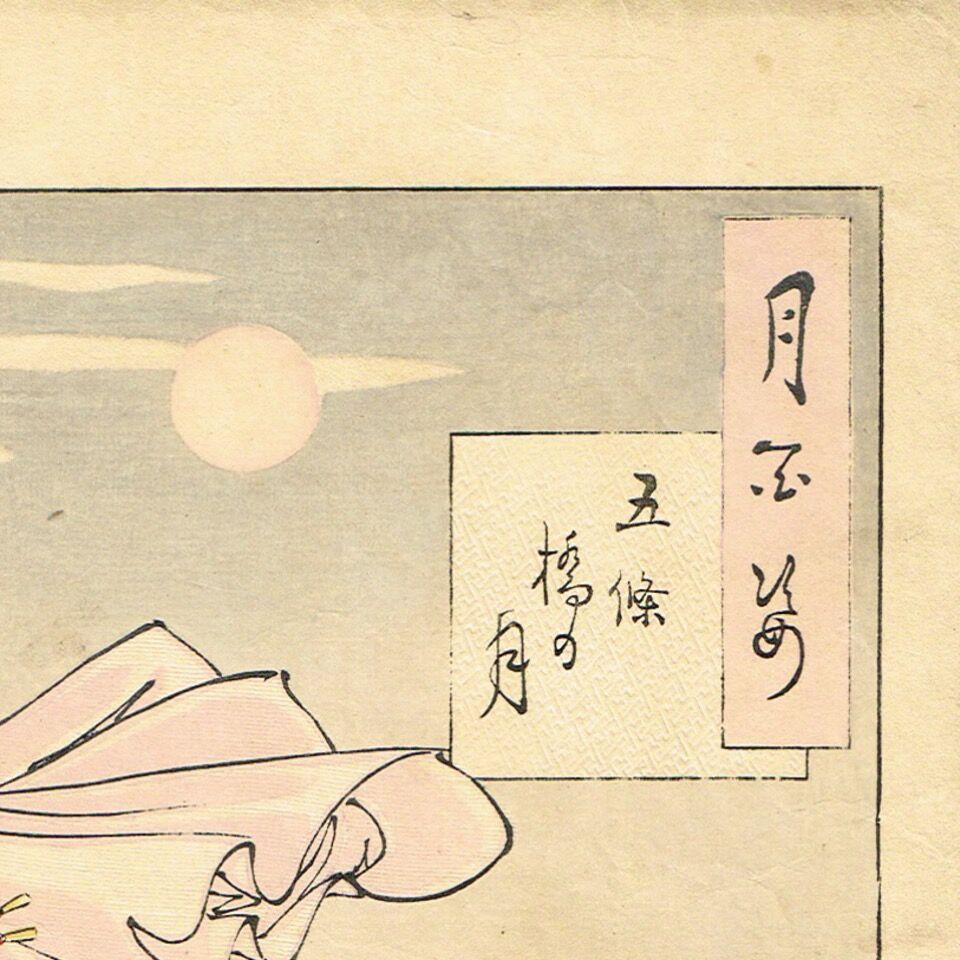 月百姿
五條
橋の
月